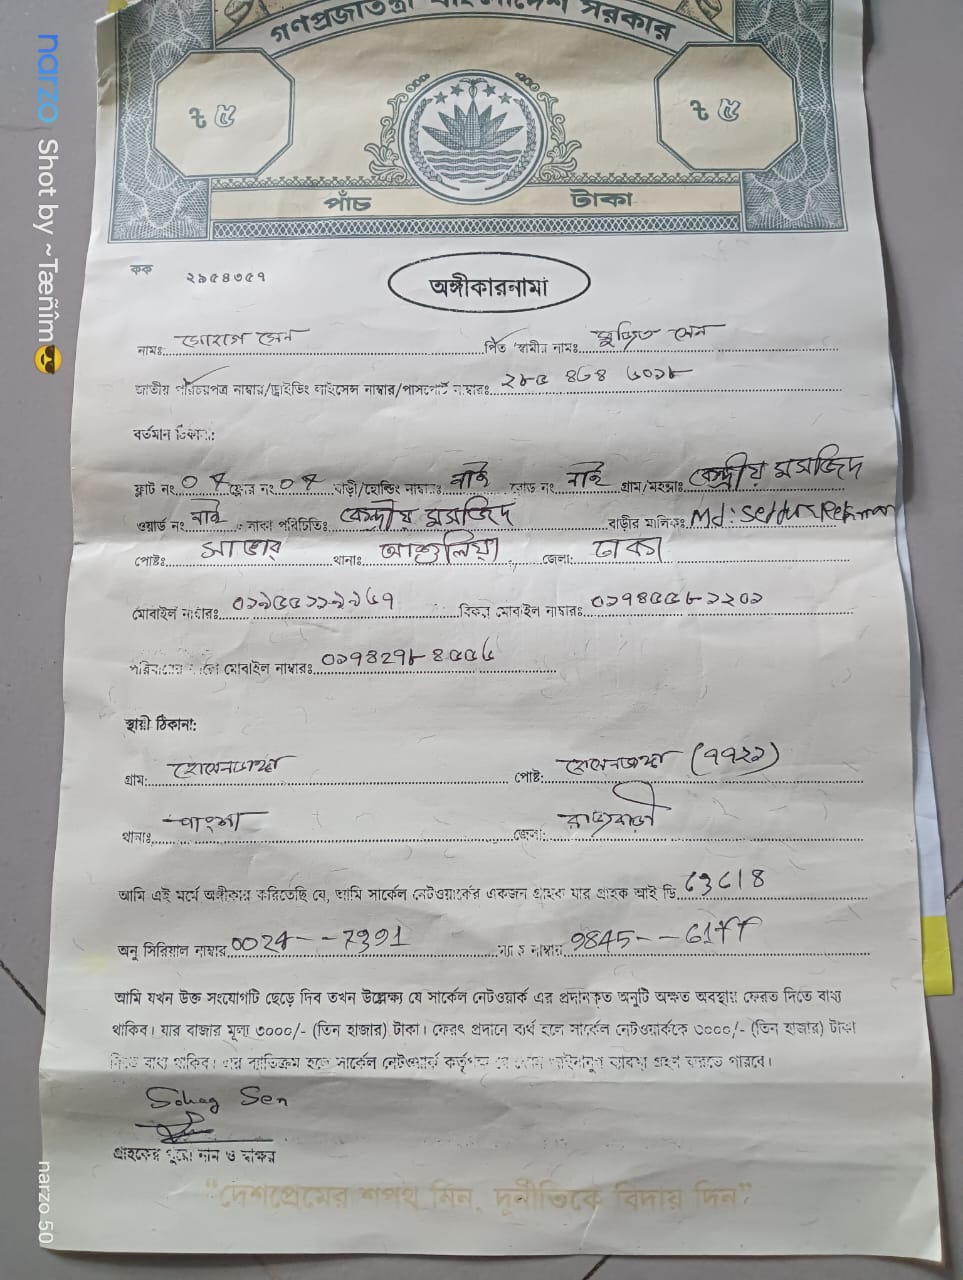 গণপ্রজাতন্ত্রী বাংলাদেশ সরকার
৳ ৫ ৳ ৫
পাঁচ টাকা
কক ২৯৫৪৩৫৭
অঙ্গীকারনামা
নামঃ সোহাগ সেন পিতা/স্বামীর নামঃ সুজিত সেন
জাতীয় পরিচয়পত্র নাম্বার/ড্রাইভিং লাইসেন্স নাম্বার/পাসপোর্ট নাম্বারঃ
বর্তমান ঠিকানা:
ফ্লাট নং ০৪ ফ্লোর নং ০৪ বাড়ী/হোল্ডিং নাম্বারঃ নাই রোড নং নাই গ্রাম/মহল্লাঃ কেন্দ্রীয় মসজিদ
ওয়ার্ড নং নাই এলাকা পরিচিতিঃ কেন্দ্রীয় মসজিদ বাড়ীর মালিকঃ Md:
পোষ্টঃ সাভার থানাঃ আশুলিয়া জেলা: ঢাকা
মোবাইল নাম্বারঃ বিকল্প মোবাইল নাম্বারঃ
মোবাইল নাম্বারঃ
স্থায়ী ঠিকানা:
গ্রাম: পোষ্ট: (৭৭২১)
থানাঃ পাংশা জেলা: রাজবাড়ী
আমি এই মর্মে অঙ্গীকার করিতেছি যে, আমি সার্কেল নেটওয়ার্কের একজন গ্রাহক যার গ্রাহক আই ডি
অনু সিরিয়াল নাম্বার 0024--7391 ম্যাক নাম্বার 9845--
আমি যখন উক্ত সংযোগটি ছেড়ে দিব তখন উল্লেক্ষ্য যে সার্কেল নেটওয়ার্ক এর প্রদানকৃত অনুটি অক্ষত অবস্থায় ফেরত দিতে বাধ্য
থাকিব। যার বাজার মূল্য ৩০০০/- (তিন হাজার) টাকা। ফেরৎ প্রদানে ব্যর্থ হলে সার্কেল নেটওয়ার্ককে ৩০০০/- (তিন হাজার) টাকা
দিতে বাধ্য থাকিব। এর ব্যতিক্রম হলে সার্কেল নেটওয়ার্ক কর্তৃপক্ষ যে কোন আইনানুগ ব্যবস্থা গ্রহন করতে পারবে।
Sohag Sen
গ্রাহকের পুরো নাম ও স্বাক্ষর
"দেশপ্রেমের শপথ নিন, দূর্নীতিকে বিদায় দিন"
narzo Shot by ~Tæñîm😎
narzo 50